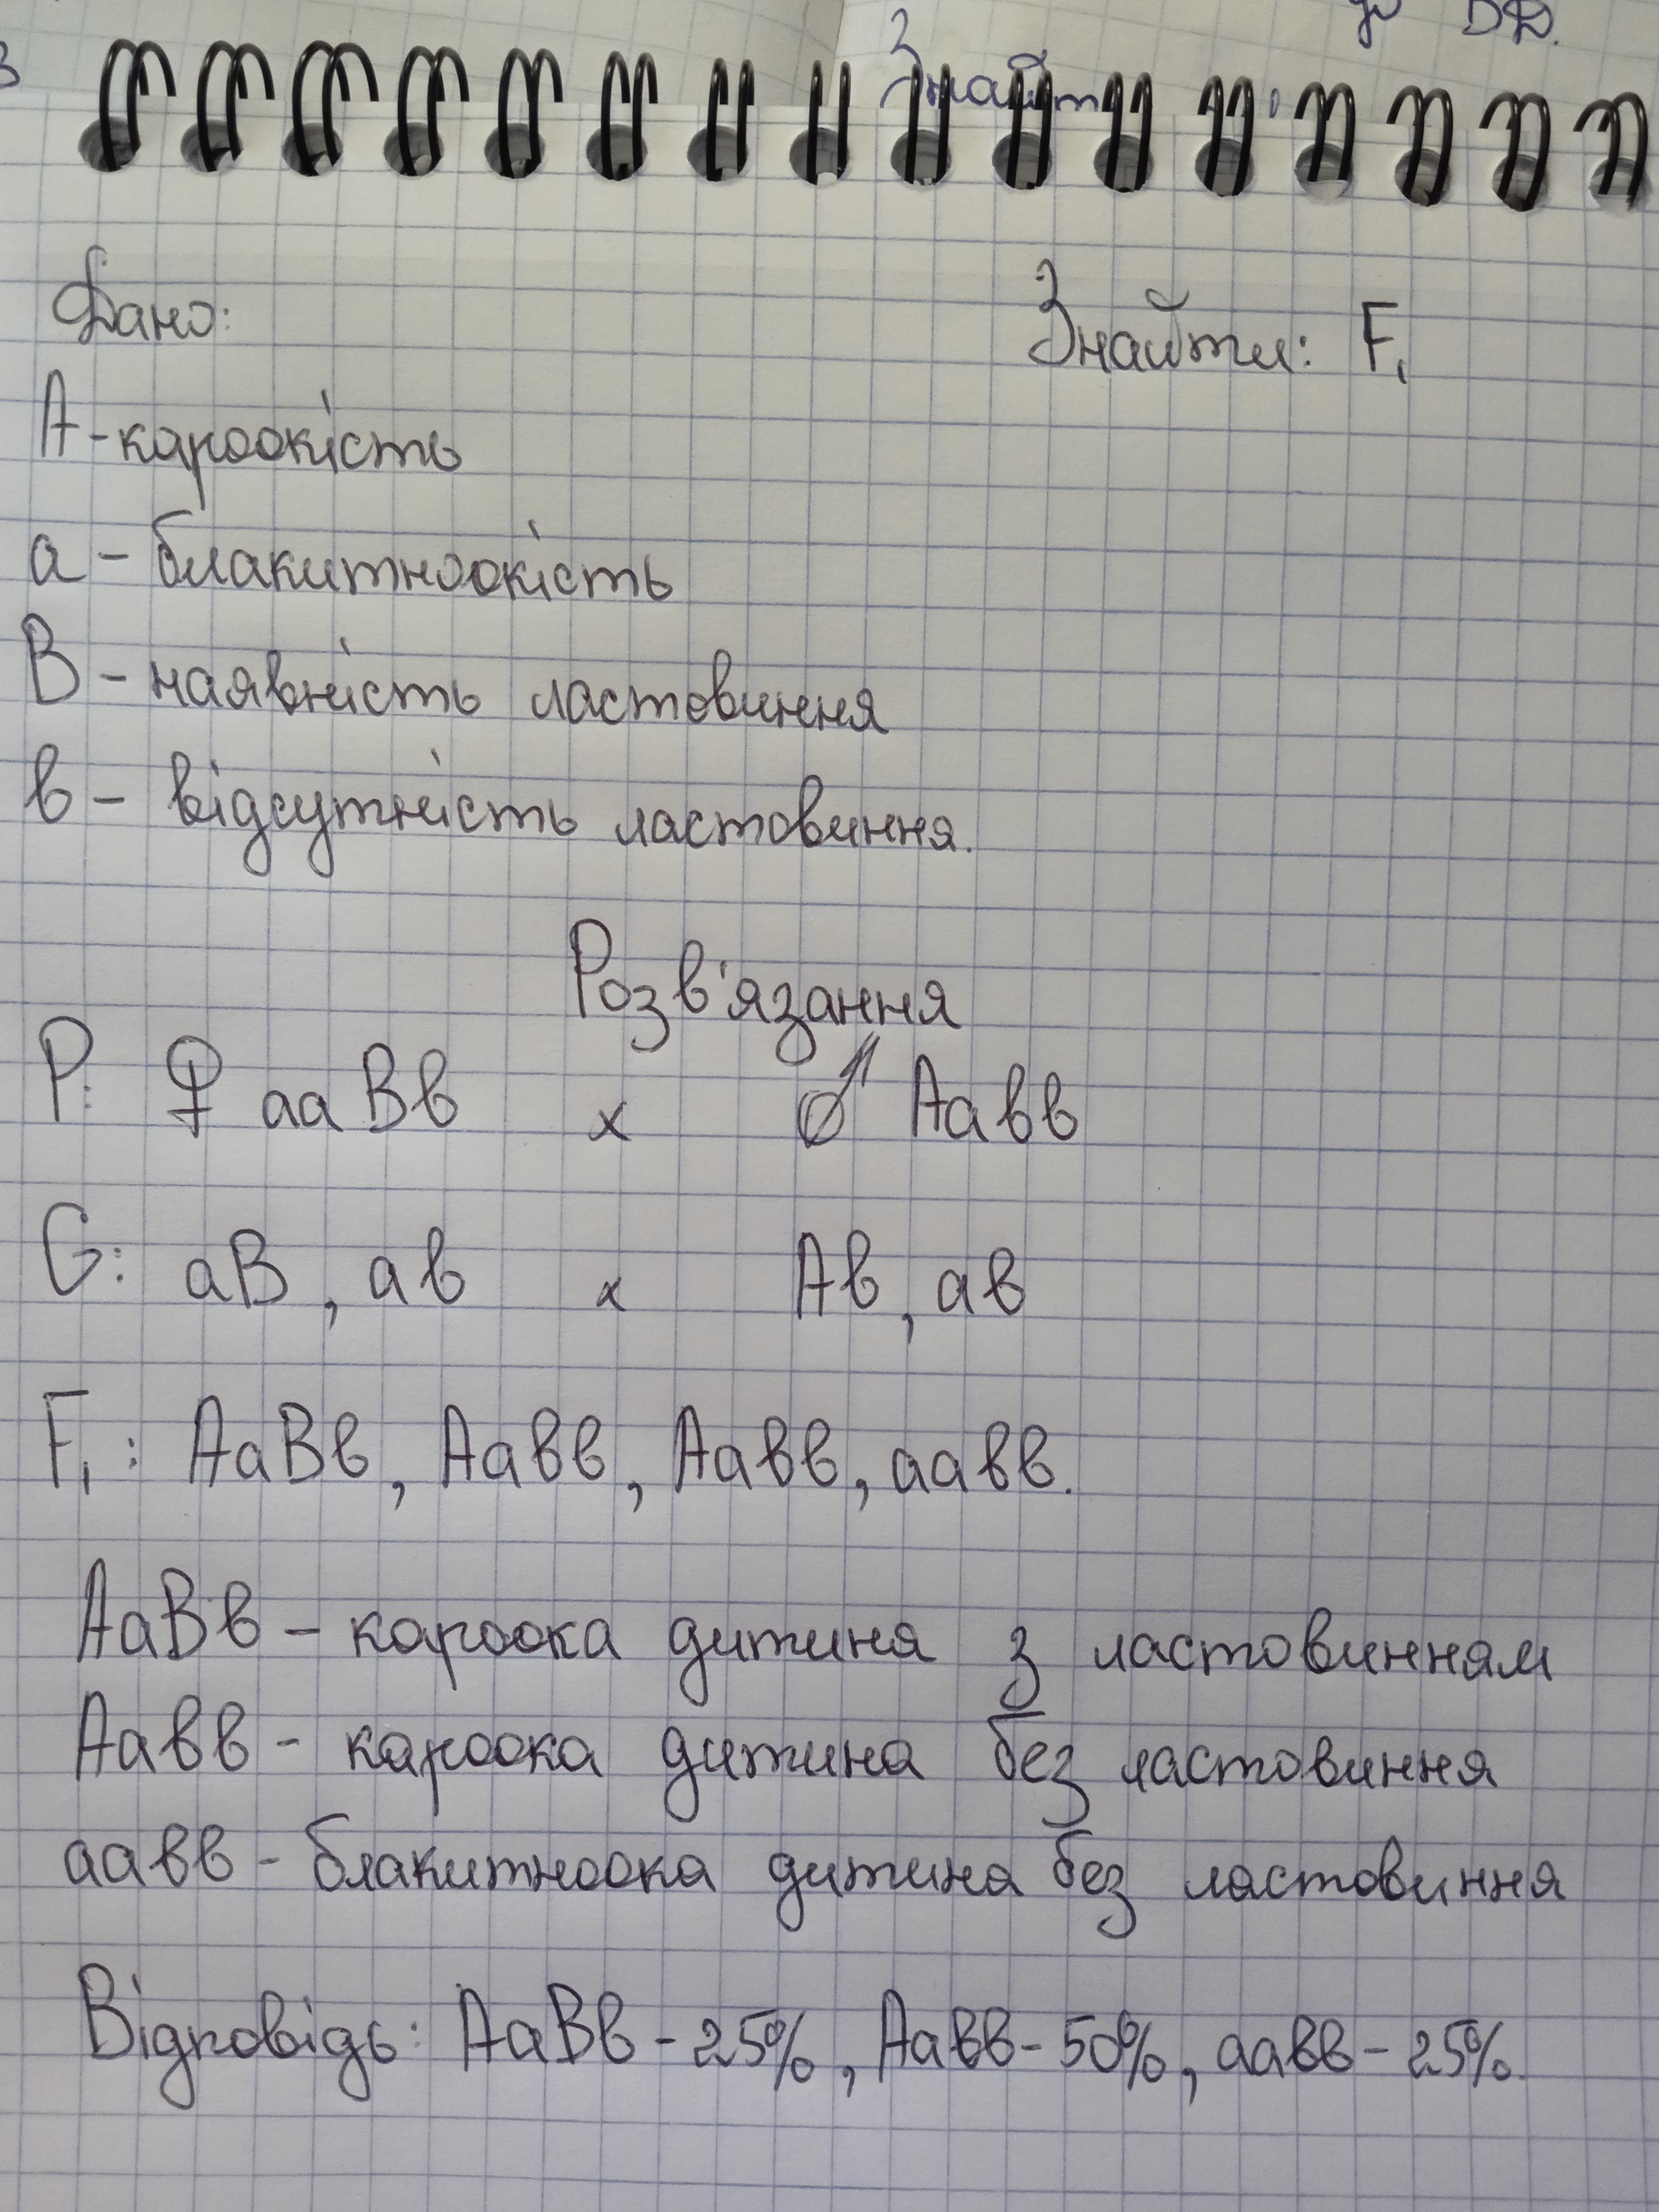 DD.
Знайт
Дано:
Знайти: F₁
А - кароокість
а - блакитноокість
В - наявність ластовиння
в - відсутність ластовиння.
Розв'язання
Р: ♀ ааВв х ♂ Аавв
G: аВ, ав х Ав, ав
F₁: АаВв, Аавв, Аавв, аавв.
АаВв - кароока дитина з ластовинням
Аавв - кароока дитина без ластовиння
аавв - блакитноока дитина без ластовиння
Відповідь: АаВв - 25%, Аавв - 50%, аавв - 25%.